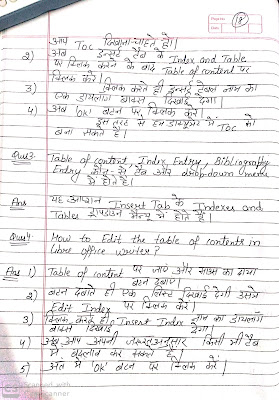 (18)
आप Toc दिखाना चाहते हो।
2) अब इन्सर्ट टैब के Index and Table
पर क्लिक करने के बाद Table of content पर
क्लिक करें।
3) क्लिक करते ही इन्सर्ट टेबल नाम का
एक डायलॉग बाक्स दिखाई देगा।
4) अब 'OK' बटन पर क्लिक करें
इस तरह से हम डाक्यूमेंट में TOC को
बना सकते है।
Ques3. Table of content, Index Entry, Bibliography
Entry कौन से टैब और dropdown menu
में होते है।
Ans यह आप्शन Insert Tab के Indexes and
Tables ड्रापडाउन मेन्यू में होते है।
Ques4. How to Edit the table of contents in
Libre office writer?
Ans 1) Table of content पर जाए और माउस का दायां
बटन दबाएं।
2) बटन दबाते ही एक लिस्ट दिखाई देगी उसमें
Edit Index पर क्लिक करें।
3) क्लिक करते ही Insert Index नाम का डायलॉग
बाक्स दिखाई देगा।
4) अब आप अपनी जरूरत अनुसार किसी भी टैब
में बदलाव कर सकते है।
5) अंत में 'OK' बटन पर क्लिक करें।